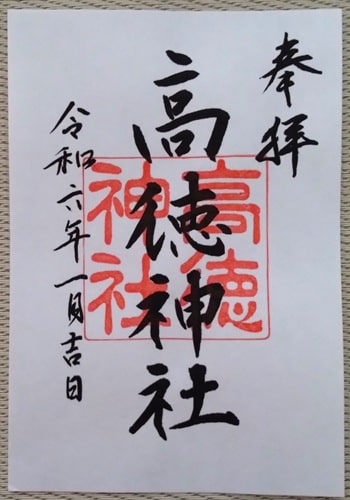 奉拝
高徳神社
高徳
神社
令和六年一月吉日